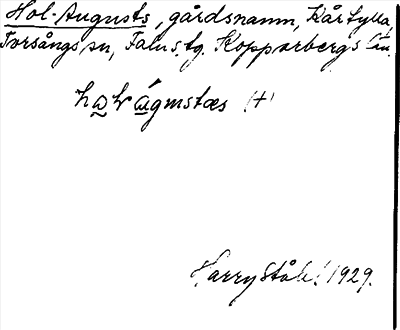 Hol-Augusts, gårdsnamn, Kårtylla,
Torsångs sn, Falus tg. Kopparbergs län.
Harry Ståhl 1929.